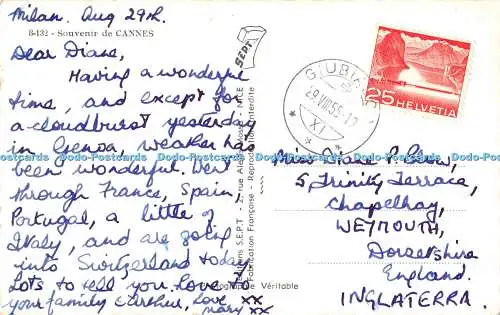 Milan. Aug 29th.
8-132 - Souvenir de CANNES
Dear Diane,
Having a wonderful
time, and except for
a cloudburst yesterday
in Genoa, weather has
been wonderful. Went
through France, Spain,
Portugal, a little of
Italy, and are going
into Switzerland today
Lots to tell you. Love to
your family &
Love xx
Mary xx
SEPT
Editions S.E.P.T. - NICE
Fabrication Française - Rep
Interdite
Photographie Véritable
GIUBIASCO
29.VIII.55-17
XI
25 HELVETIA
Miss Diane P.
5 Trinity Terrace,
Chapelhay,
WEYMOUTH,
Dorsetshire
England.
INGLATERRA.
Dodo-Postcards Dodo-Postcards Dodo-Postcards Dodo-Postcards Dodo-Postcards